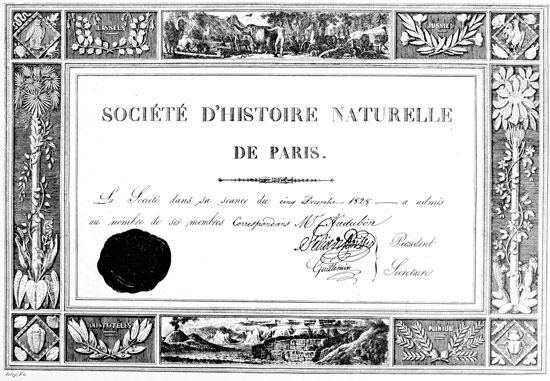 LINNEUS
JUSSIEU
SOCIÉTÉ D'HISTOIRE NATURELLE
DE PARIS.
La Société dans sa séance du cinq Decembre 1828 — a admis
au nombre de ses membres Correspondans Mr. J. Audubon
President
Guillemin Secretaire
ARISTOTELES
PLINIUS